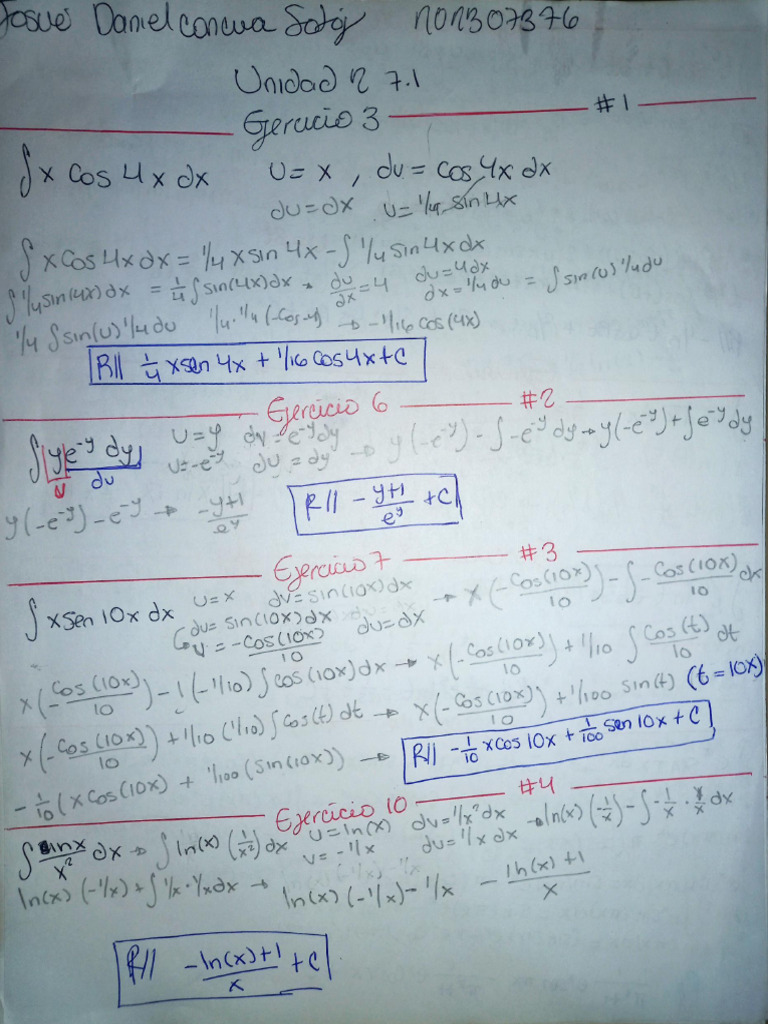 Josué Daniel concua Sotoj 202307376
Unidad 2 7.1
Ejercicio 3 #1
∫x cos 4x dx u = x , dv = cos 4x dx
du = dx v = 1/4 sin 4x
∫x cos 4x dx = 1/4 x sin 4x - ∫ 1/4 sin 4x dx
∫ 1/4 sin(4x) dx = 1/4 ∫ sin(4x) dx → du/dx = 4 du = 4dx dx = 1/4 du = ∫ sin(u) 1/4 du
1/4 ∫ sin(u) 1/4 du 1/4 · 1/4 (-cos u) → -1/16 cos(4x)
R// 1/4 x sen 4x + 1/16 cos 4x + C
Ejercicio 6 #2
∫ y e^-y dy u = y dv = e^-y dy → y(-e^-y) - ∫ -e^-y dy → y(-e^-y) + ∫ e^-y dy
u dv v = -e^-y du = dy
y(-e^-y) - e^-y → -y+1/e^y R// - y+1/e^y + C
Ejercicio 7 #3
∫ x sen 10x dx u = x dv = sin(10x) dx → x(-cos(10x)/10) - ∫ -cos(10x)/10 dx
dv = sin(10x) dx du = dx
v = -cos(10x)/10
x(-cos(10x)/10) - 1(-1/10) ∫ cos(10x) dx → x(-cos(10x)/10) + 1/10 ∫ cos(t)/10 dt
x(-cos(10x)/10) + 1/10 (1/10) ∫ cos(t) dt → x(-cos(10x)/10) + 1/100 sin(t) (t = 10x)
-1/10 (x cos(10x) + 1/100 (sin(10x)) → R// -1/10 x cos 10x + 1/100 sen 10x + C
Ejercicio 10 #4
∫ lnx/x² dx → ∫ ln(x) (1/x²) dx u = ln(x) dv = 1/x² dx → ln(x) (-1/x) - ∫ -1/x · 1/x dx
v = -1/x du = 1/x dx
ln(x) (-1/x) + ∫ 1/x · 1/x dx → ln(x) (-1/x) - 1/x - ln(x)+1/x
R// -ln(x)+1/x + C